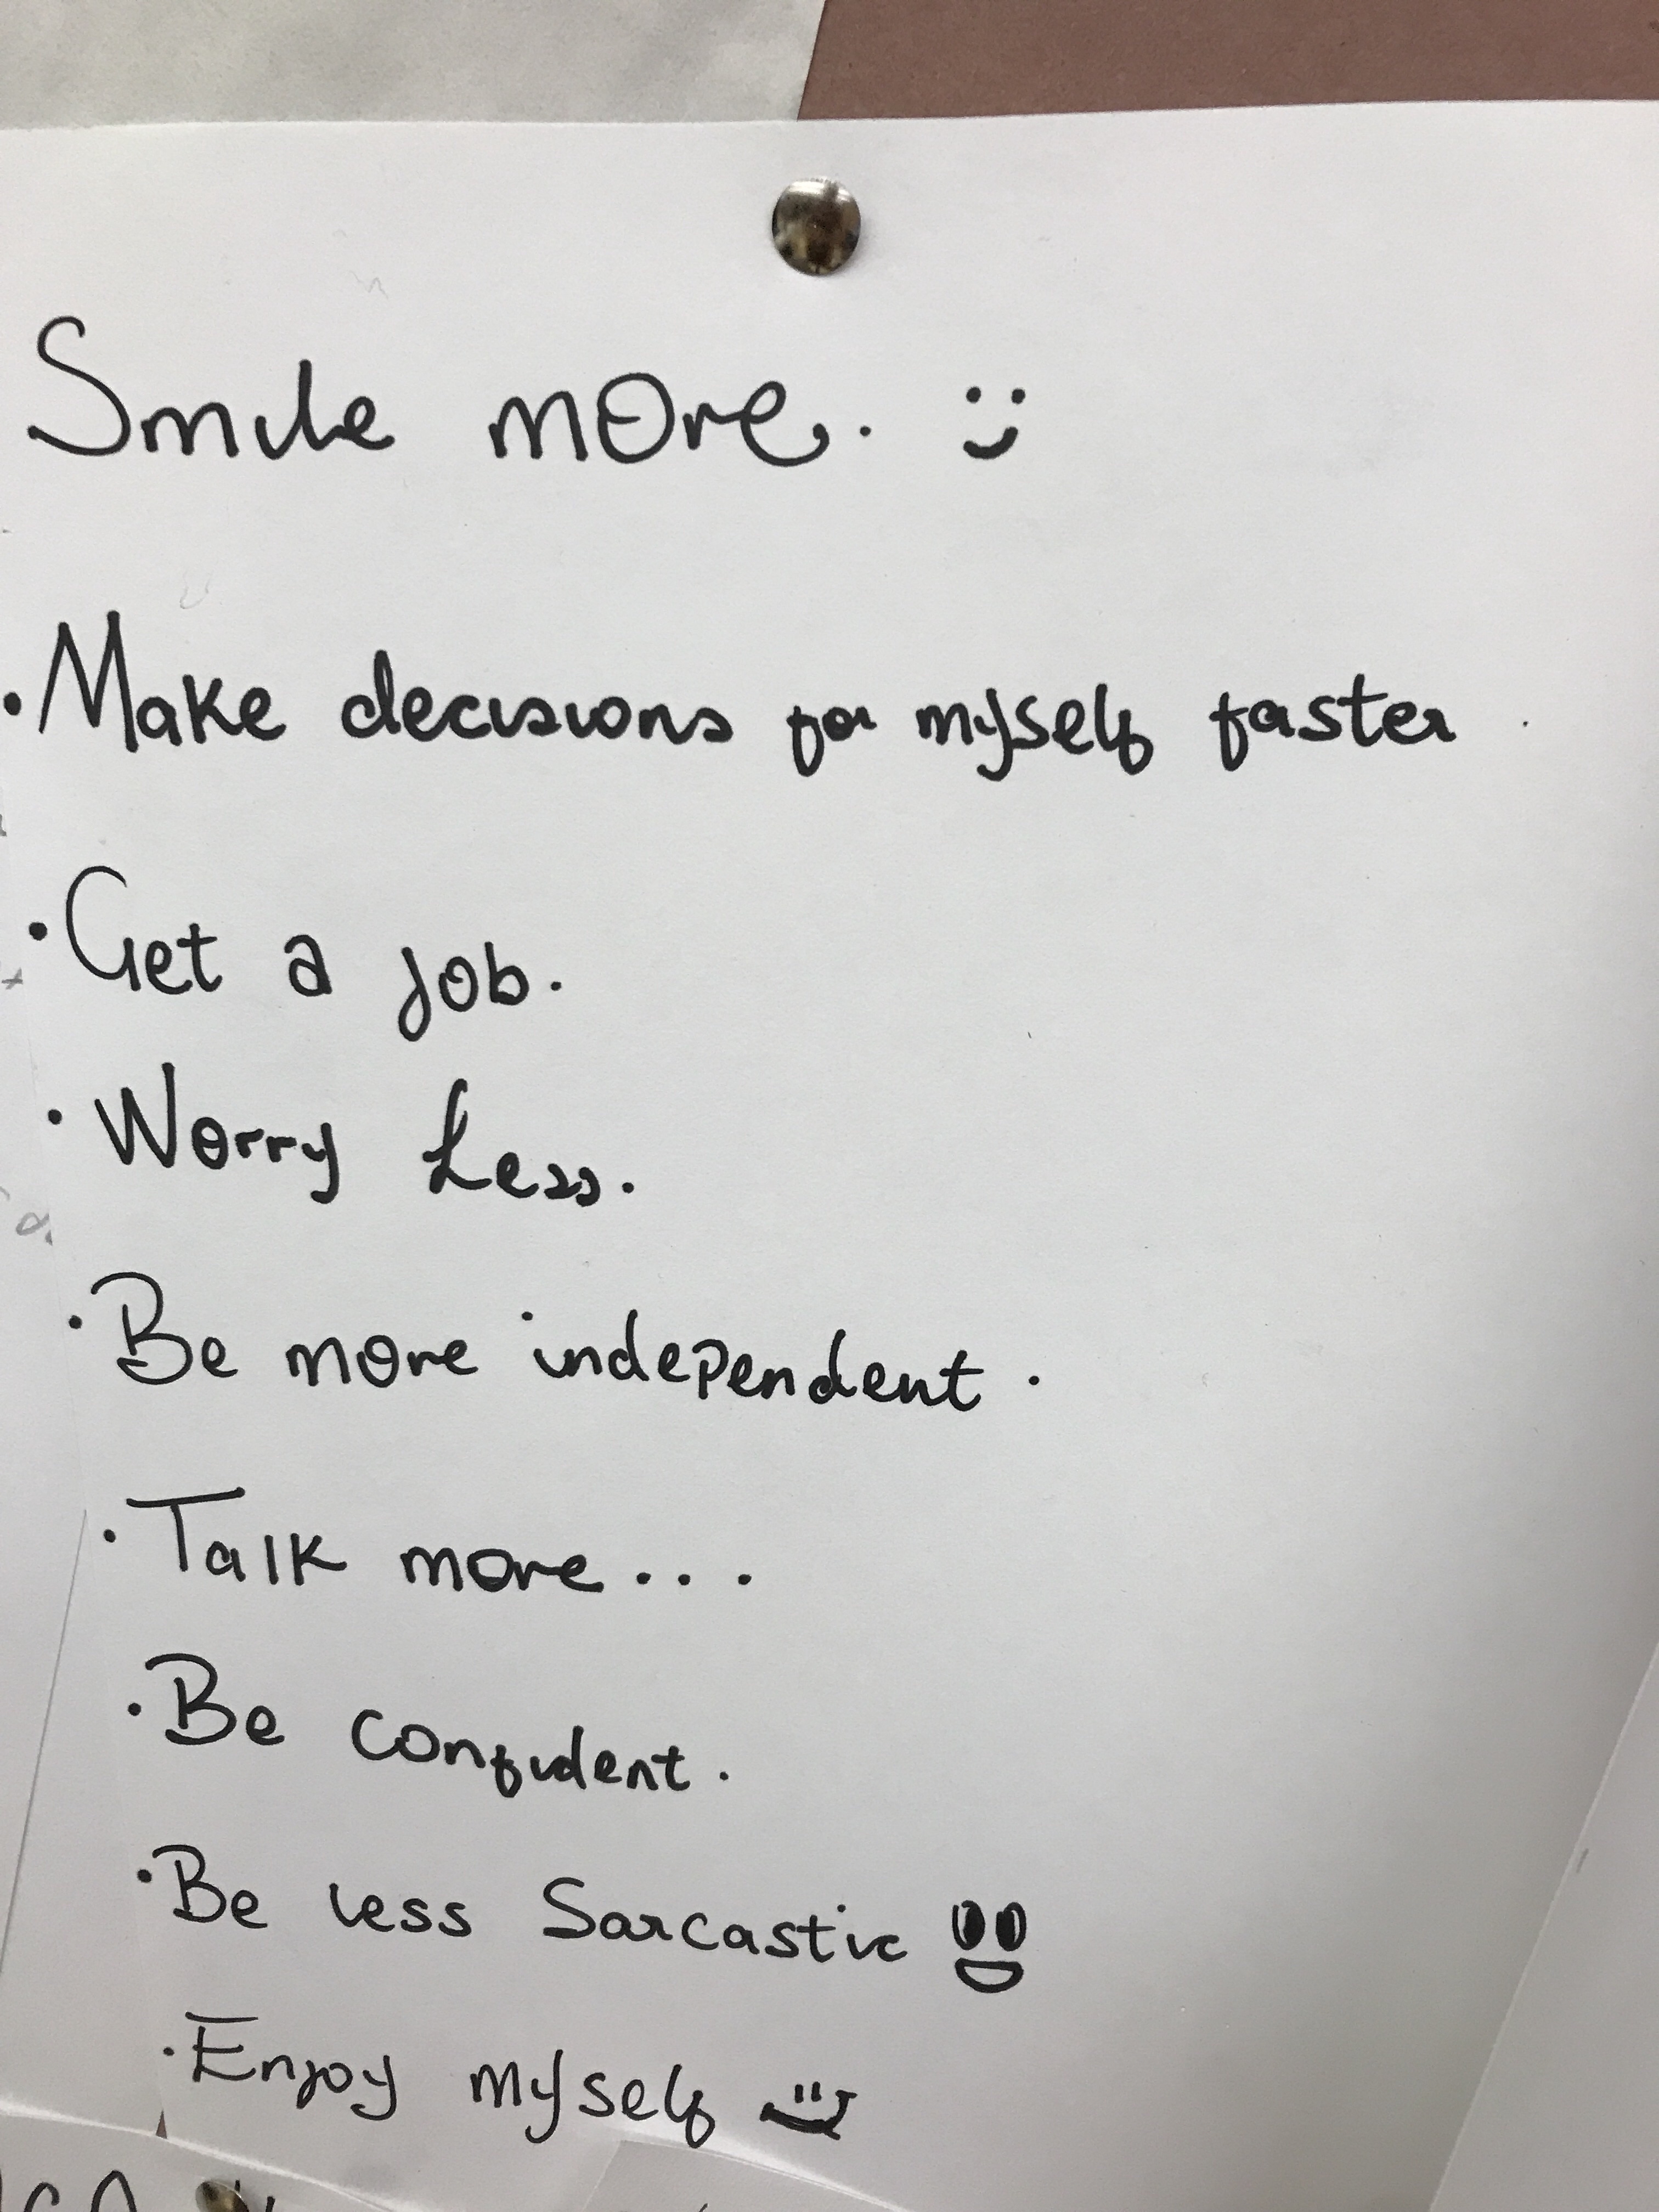 Smile more. :)
· Make decisions for myself faster.
· Get a job.
· Worry Less.
· Be more independent.
· Talk more...
· Be confident.
· Be less Sarcastic
· Enjoy myself